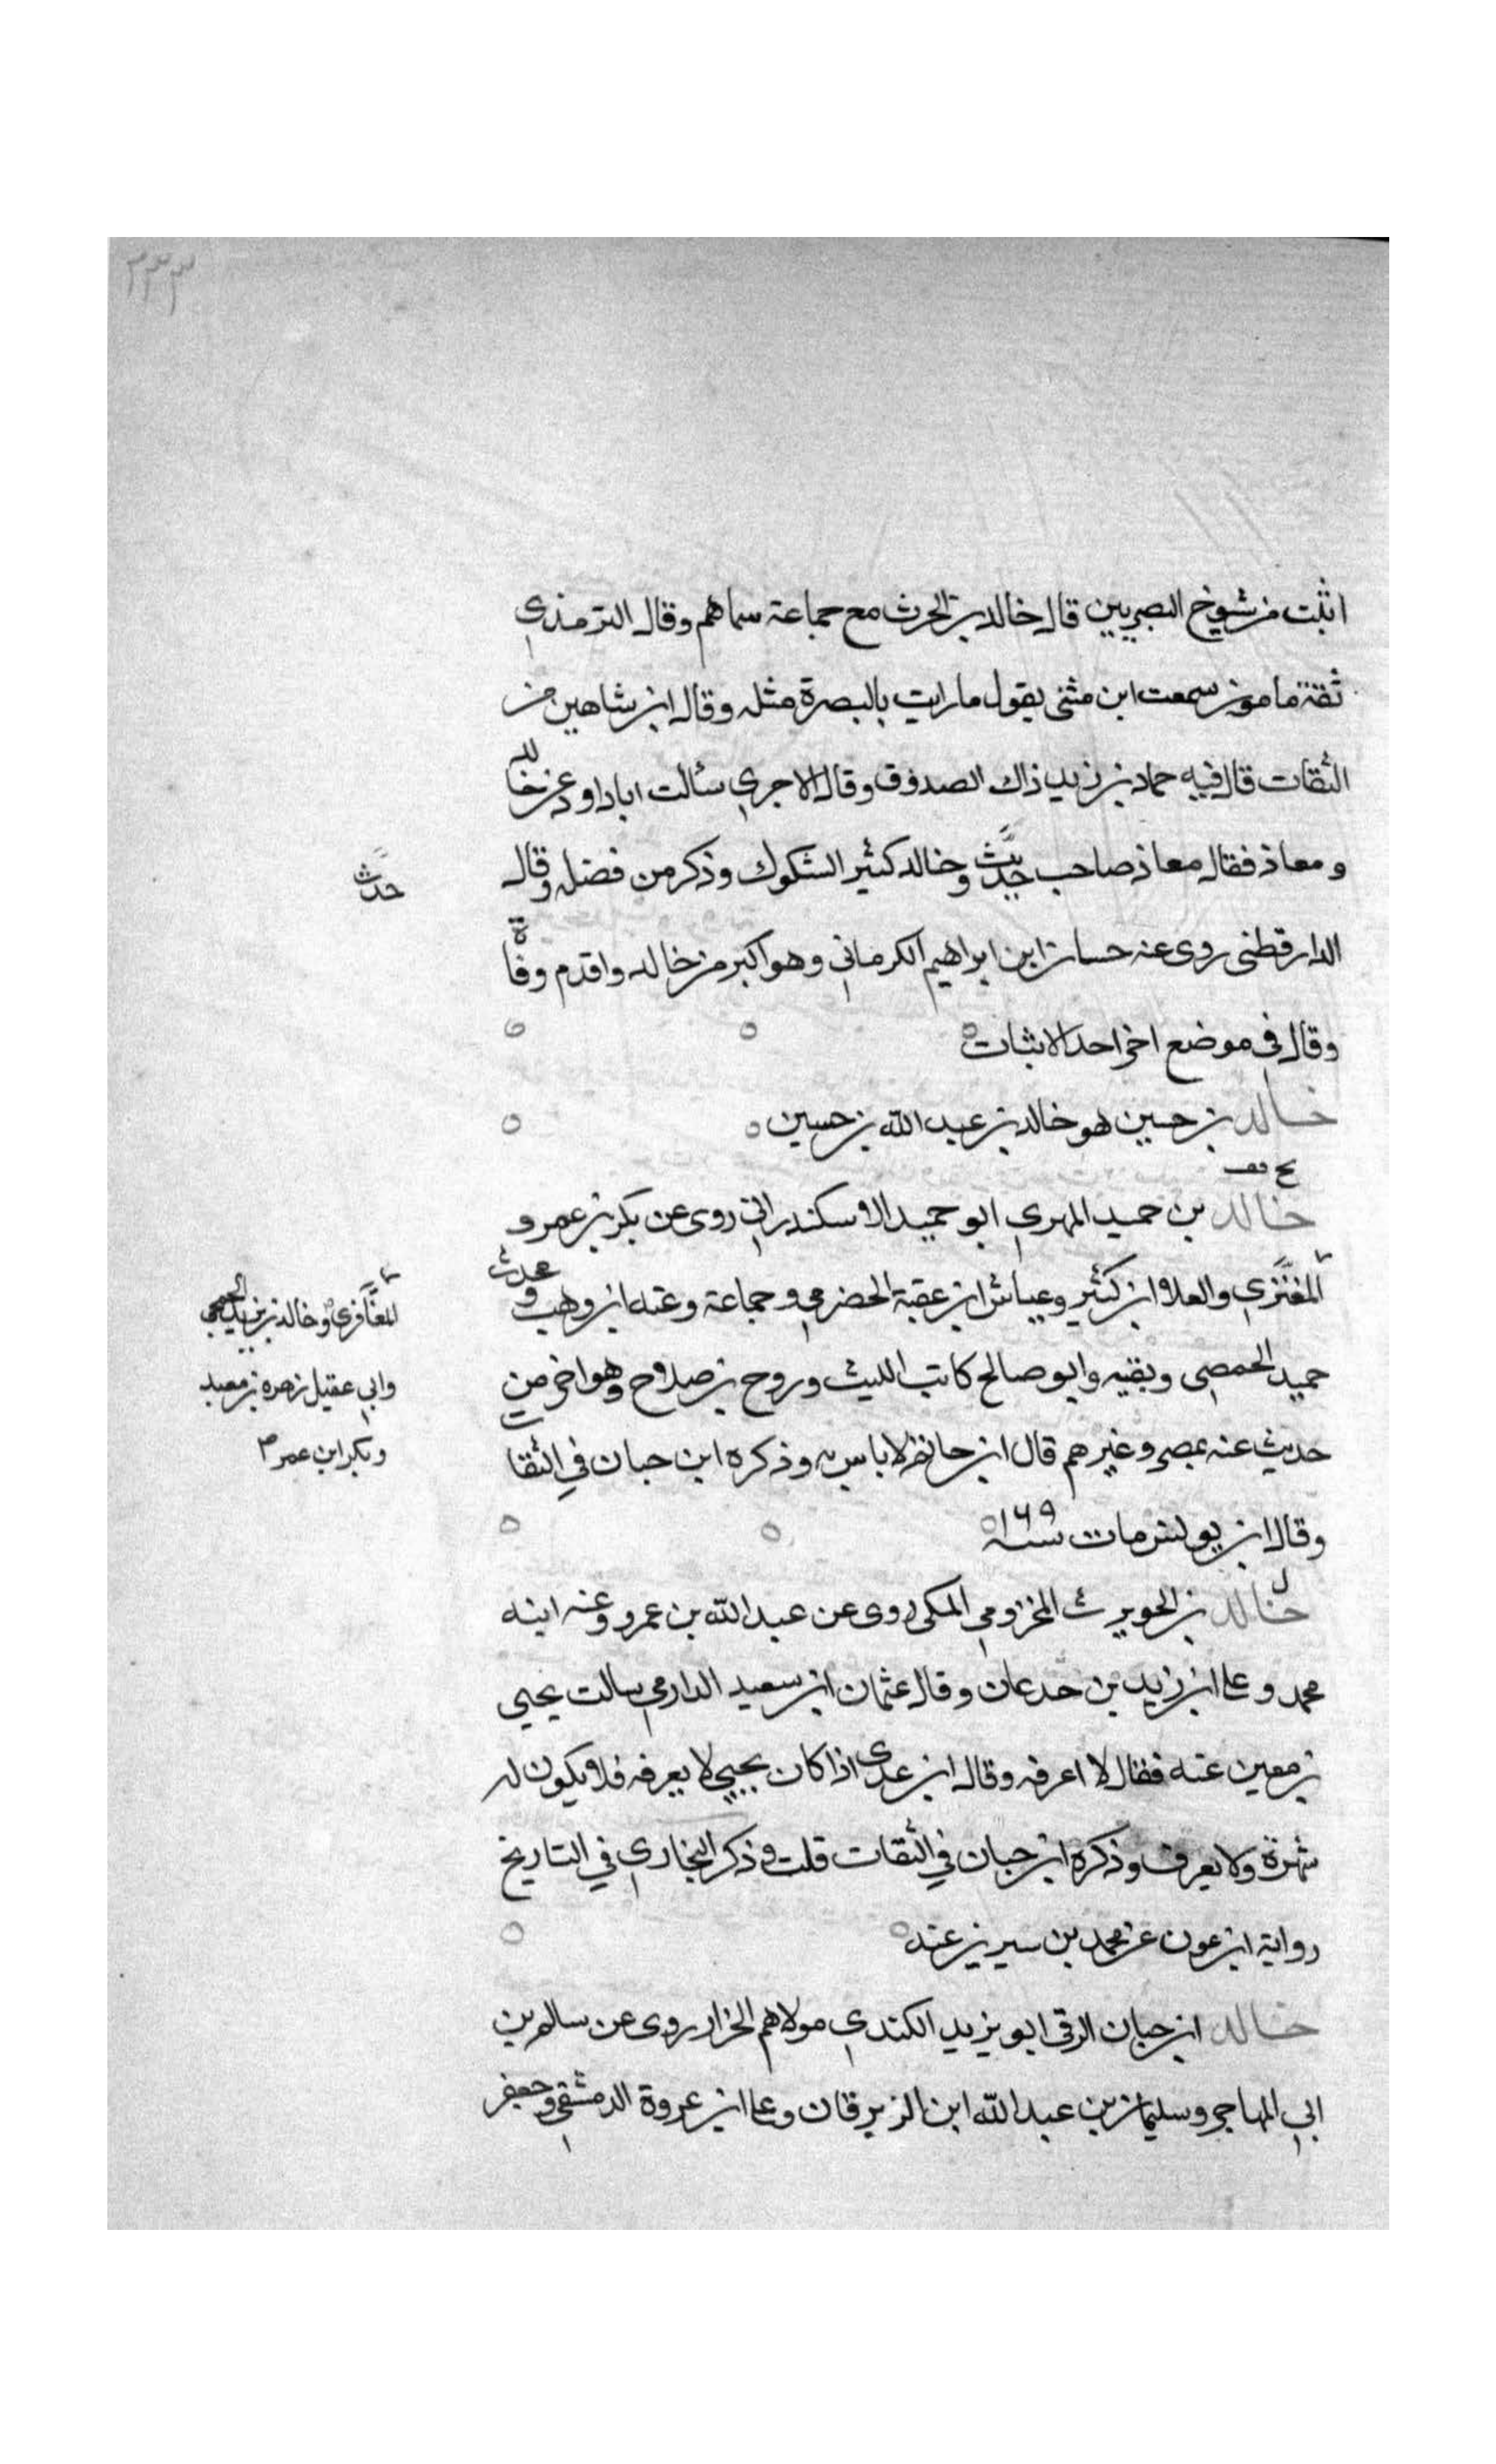 ٢٣٣
اثبت من شيوخ البصريين قال خالد بن الحرث مع جماعة سماهم وقال الترمذي
ثقة مامون سمعت ابن مثنى يقول ما رايت بالبصرة مثله وقال ابن شاهين من
الثقات قال فيه حماد بن زيد ذاك الصدوق وقال الاجري سالت ابا داود عن خالد
ومعاذ فقال معاذ صاحب حديث وخالد كثير الشكوك وذكر من فضله وقال
حدث
الدارقطنى روى عنه حسان ابن ابراهيم الكرماني وهو اكبر من خالد واقدم وفاة
وقال في موضع اخر احد الاثبات
خالد بن حسين هو خالد بن عبد الله بن حسين
خالد بن حميد المهري ابو حميد الاسكندراني روى عن بكر بن عمرو
والعلاء ابن كثير وعياش ابن عقبة الحضرمي و جماعة وعنه ابن وهب و محدث
المعافرى وخالد بن يزيد الجمحي
وابي عقيل زهره بن معبد
وبكر ابن عمر
حميد الحمصى وبقيه وابو صالح كاتب الليث وروح بن صلاح وهو اخر من
حديث عنه بمصر وغيرهم قال ابن حاتم لا باس به وذكره ابن حبان في الثقات
وقال ابن يونس مات سنة ١٦٩
خالد بن الحويرث المخزومي المكى روى عن عبد الله بن عمرو وعنه ابنه
محمد وعلى ابن زيد بن جدعان وقال عثمان ابن سعيد الدارمي سالت يحيى
بن معين عنه فقال لا اعرفه وقال ابن عدى اذا كان يحيى لا يعرفه فلا يكون له
شهرة ولا يعرف وذكره ابن حبان في الثقات قلت وذكر البخاري في التاريخ
رواية ابن عون عن محمد بن سيرين عنه
خالد ابن حبان الرقى ابو يزيد الكندي مولاهم الخراز روى عن سالم بن
ابي المهاجر وسليمان بن عبد الله ابن الزبرقان وعلى ابن عروة الدمشقي وجعفر